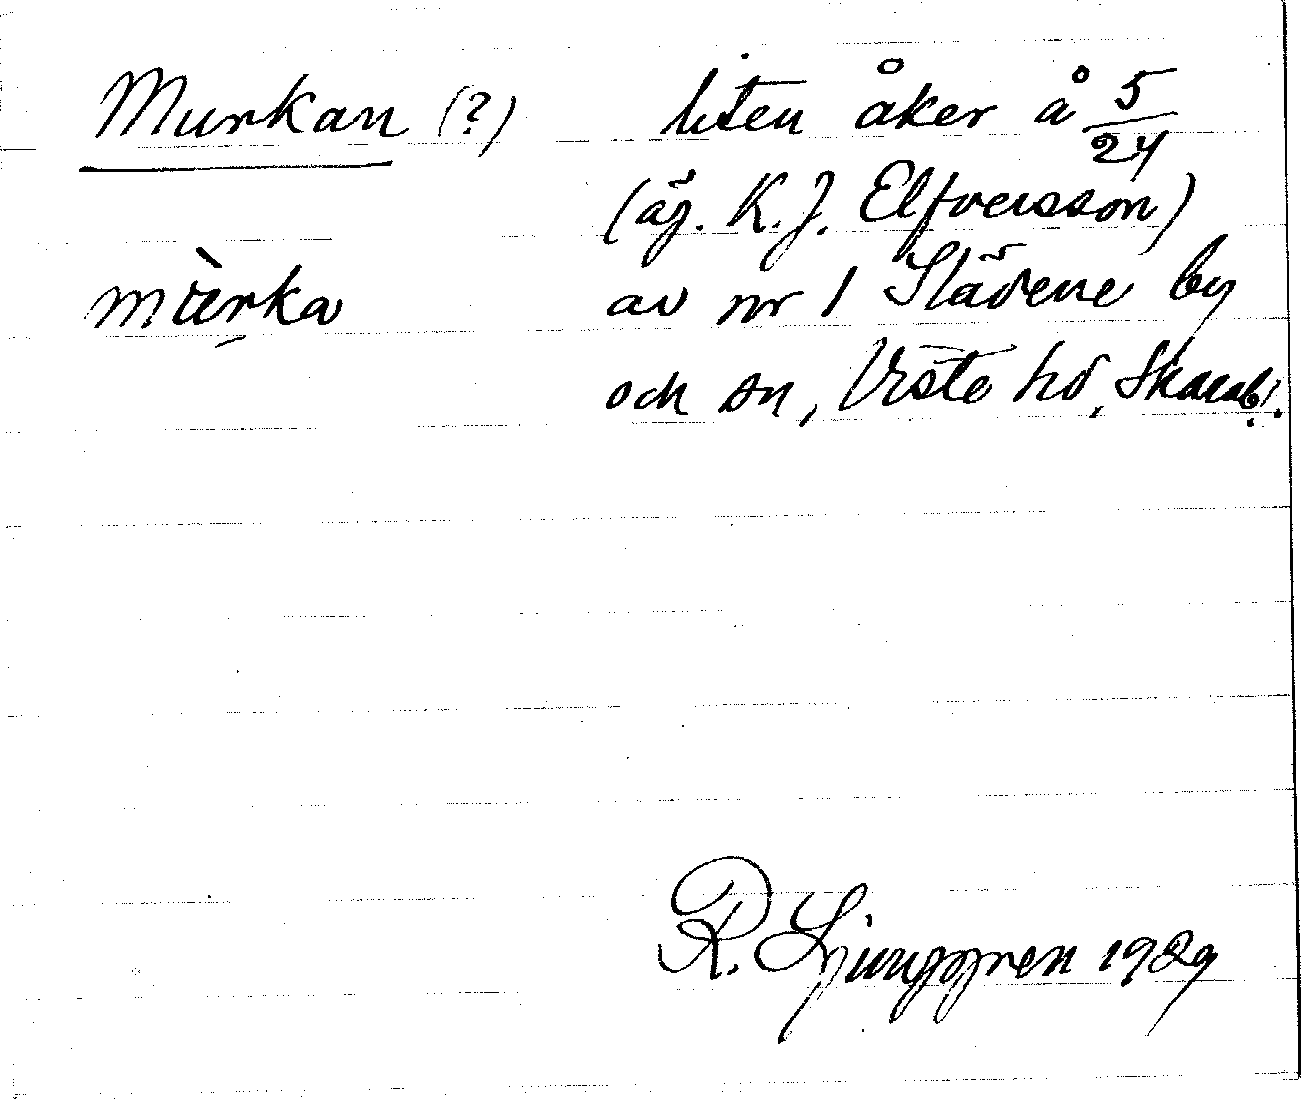 Murkan (?)
mùrka
liten åker å 5/24
(äg. K. J. Elfversson)
av nr 1 Slädene by
och sn, Viste hd, Skarab.l.
R. Ljunggren 1929